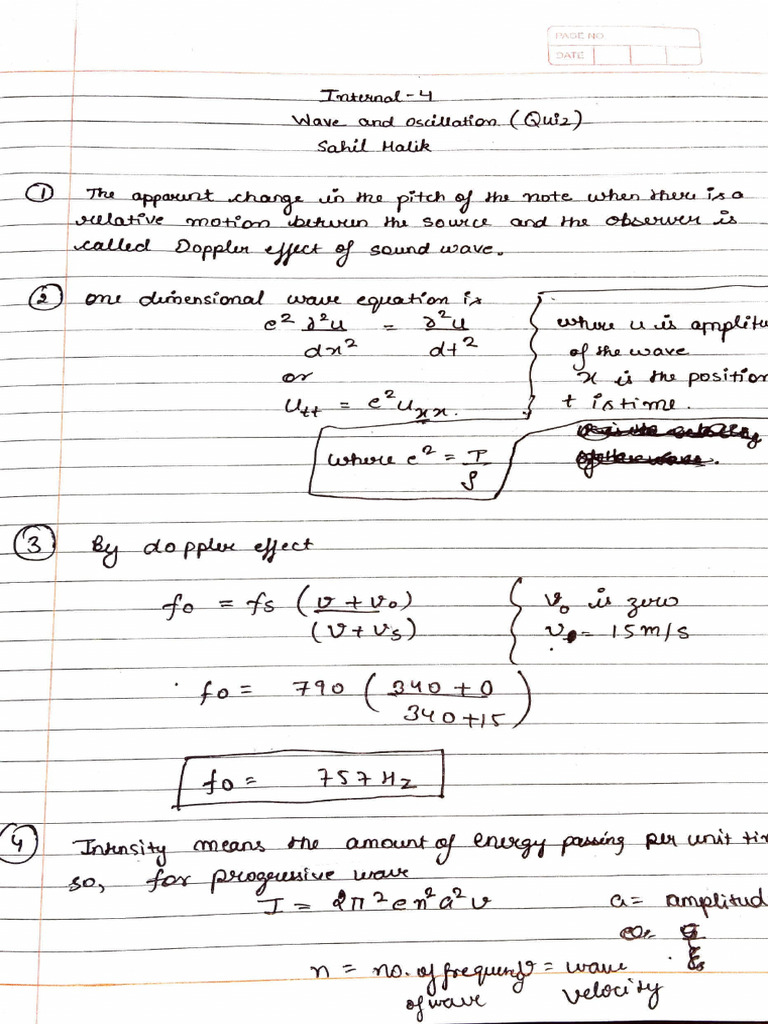 PAGE NO.
DATE
Internal-4
Wave and oscillation (Quiz)
Sahil Malik
① The apparent change in the pitch of the note when there is a
relative motion between the source and the observer is
called Doppler effect of sound wave.
② one dimensional wave equation is
c² ∂²u = ∂²u
dx² dt²
or
Utt = c²Uxx.
where u is amplitu
of the wave
x is the position
t is time.
where c² = T/ρ
③ By doppler effect
fo = fs (v + vo)
(v + vs)
vo is zero
v = 15m/s
fo = 790 ( 340 + 0
340+15 )
fo = 757 Hz
④ Intensity means the amount of energy passing per unit tim
so, for progressive wave
I = 2π²ρn²a²v
a = amplitud
n = no. of frequency
of wave
v = wave
velocity